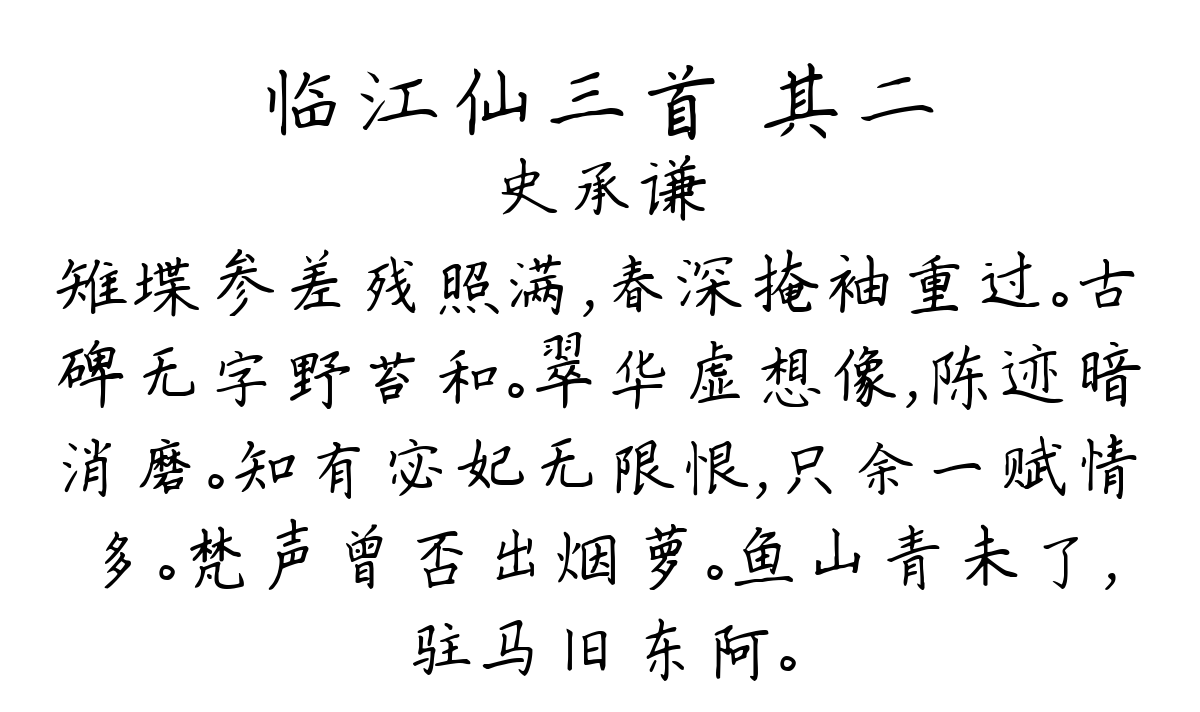 临江仙三首 其二
史承谦
雉堞参差残照满,春深掩袖重过。古
碑无字野苔和。翠华虚想像,陈迹暗
消磨。知有宓妃无限恨,只余一赋情
多。梵声曾否出烟萝。鱼山青未了,
驻马旧东阿。